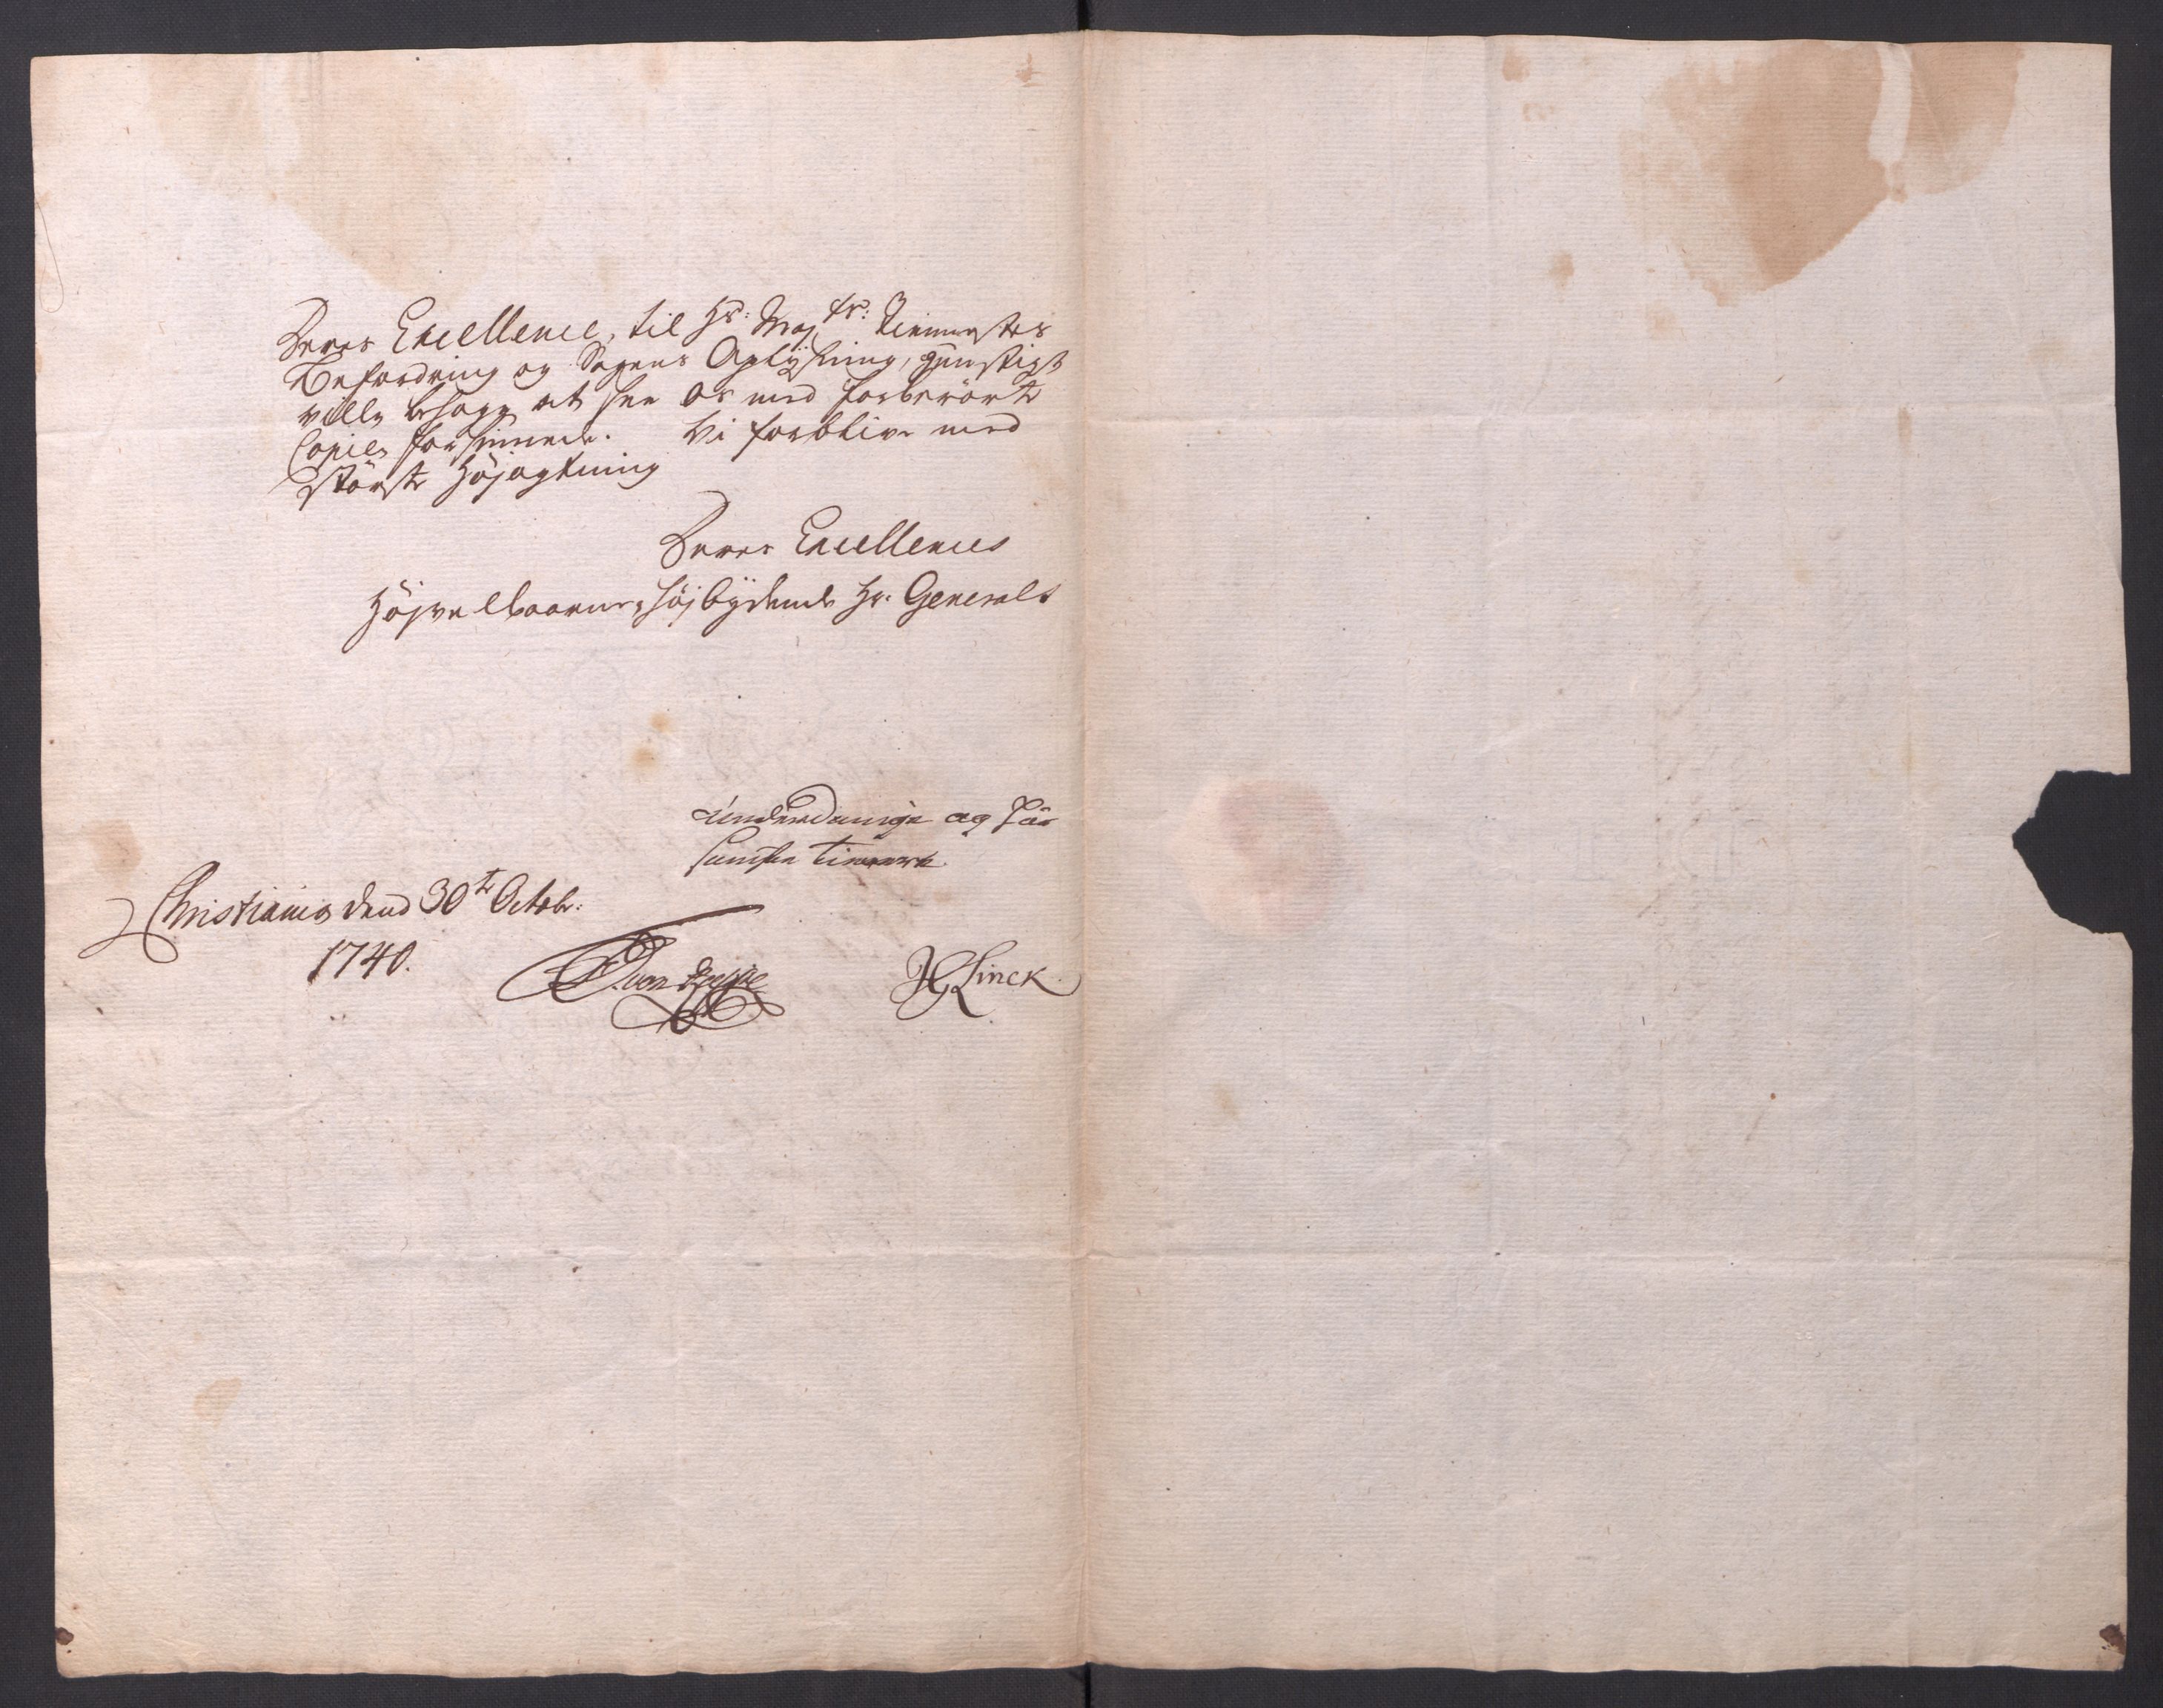 Deres Excellence, til Hs: Maj ts: Tienestes
Befordring og Sagens Oplÿsning, gunstigst
ville behage at see os med forberörte
Copier forsÿnede. Vi forblive med
störste Höjagtning
Deres Excellences
Höjvelbaarne, höjbÿdende Hr. Generals
underdanige og
tienere.
Christiania dend 30te Octobr:
1740.
von
H Linck